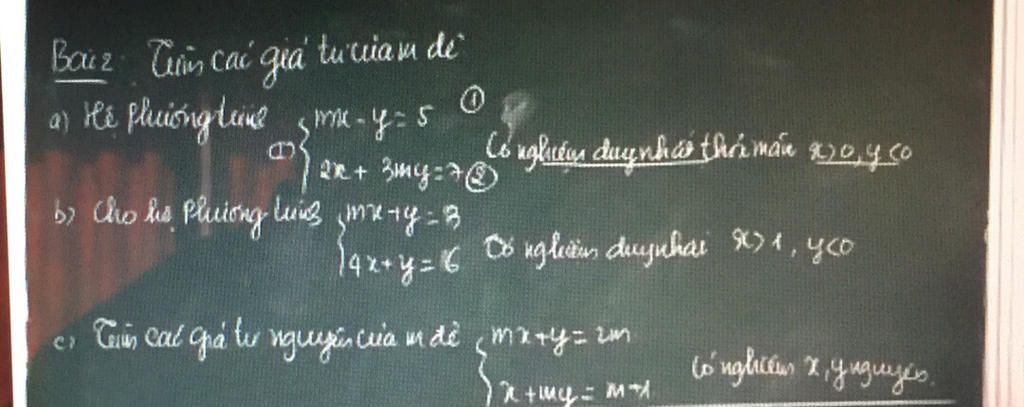 Bài 2: Tìm các giá trị của m để
a) Hệ phương trình { mx - y = 5 ① có nghiệm duy nhất thỏa mãn x>0, y<0
(I) { 2x + 3my = 7 ②
b) Cho hệ phương trình { mx + y = 3
{ 4x + y = 6 Có nghiệm duy nhất x>1, y<0
c) Tìm các giá trị nguyên của m để { mx + y = 2m
{ x + my = m+1 có nghiệm x, y nguyên.